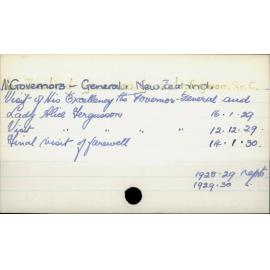 Governors - General. New Zealand.
Visit of His Excellency the Governor-General and
Lady Alice Fergusson 16.1.29
Visit " " " 12.12.29.
Final visit of farewell 14.1.30.
1928-29 repts.
1929-30 "